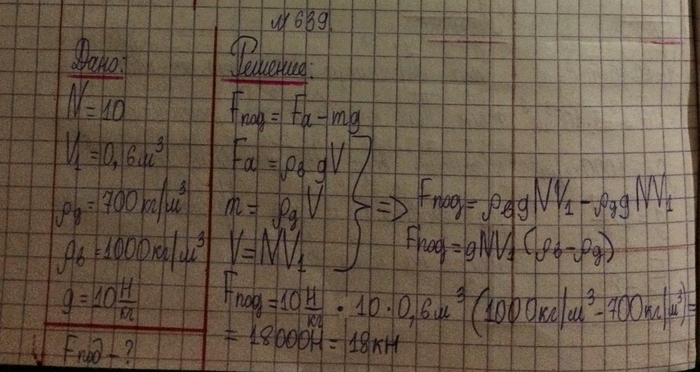 № 639.
Дано:
N = 10
V₁ = 0,6 м³
ρд = 700 кг/м³
ρв = 1000 кг/м³
g = 10 Н/кг
Fпод - ?
Решение:
Fпод = Fа - mg
Fа = ρв gV
m = ρд V
V = NV₁
=> Fпод = ρв g NV₁ - ρд g NV₁
Fпод = g NV₁ (ρв - ρд)
Fпод = 10 Н/кг · 10 · 0,6 м³ (1000 кг/м³ - 700 кг/м³) =
= 18000 Н = 18 кН